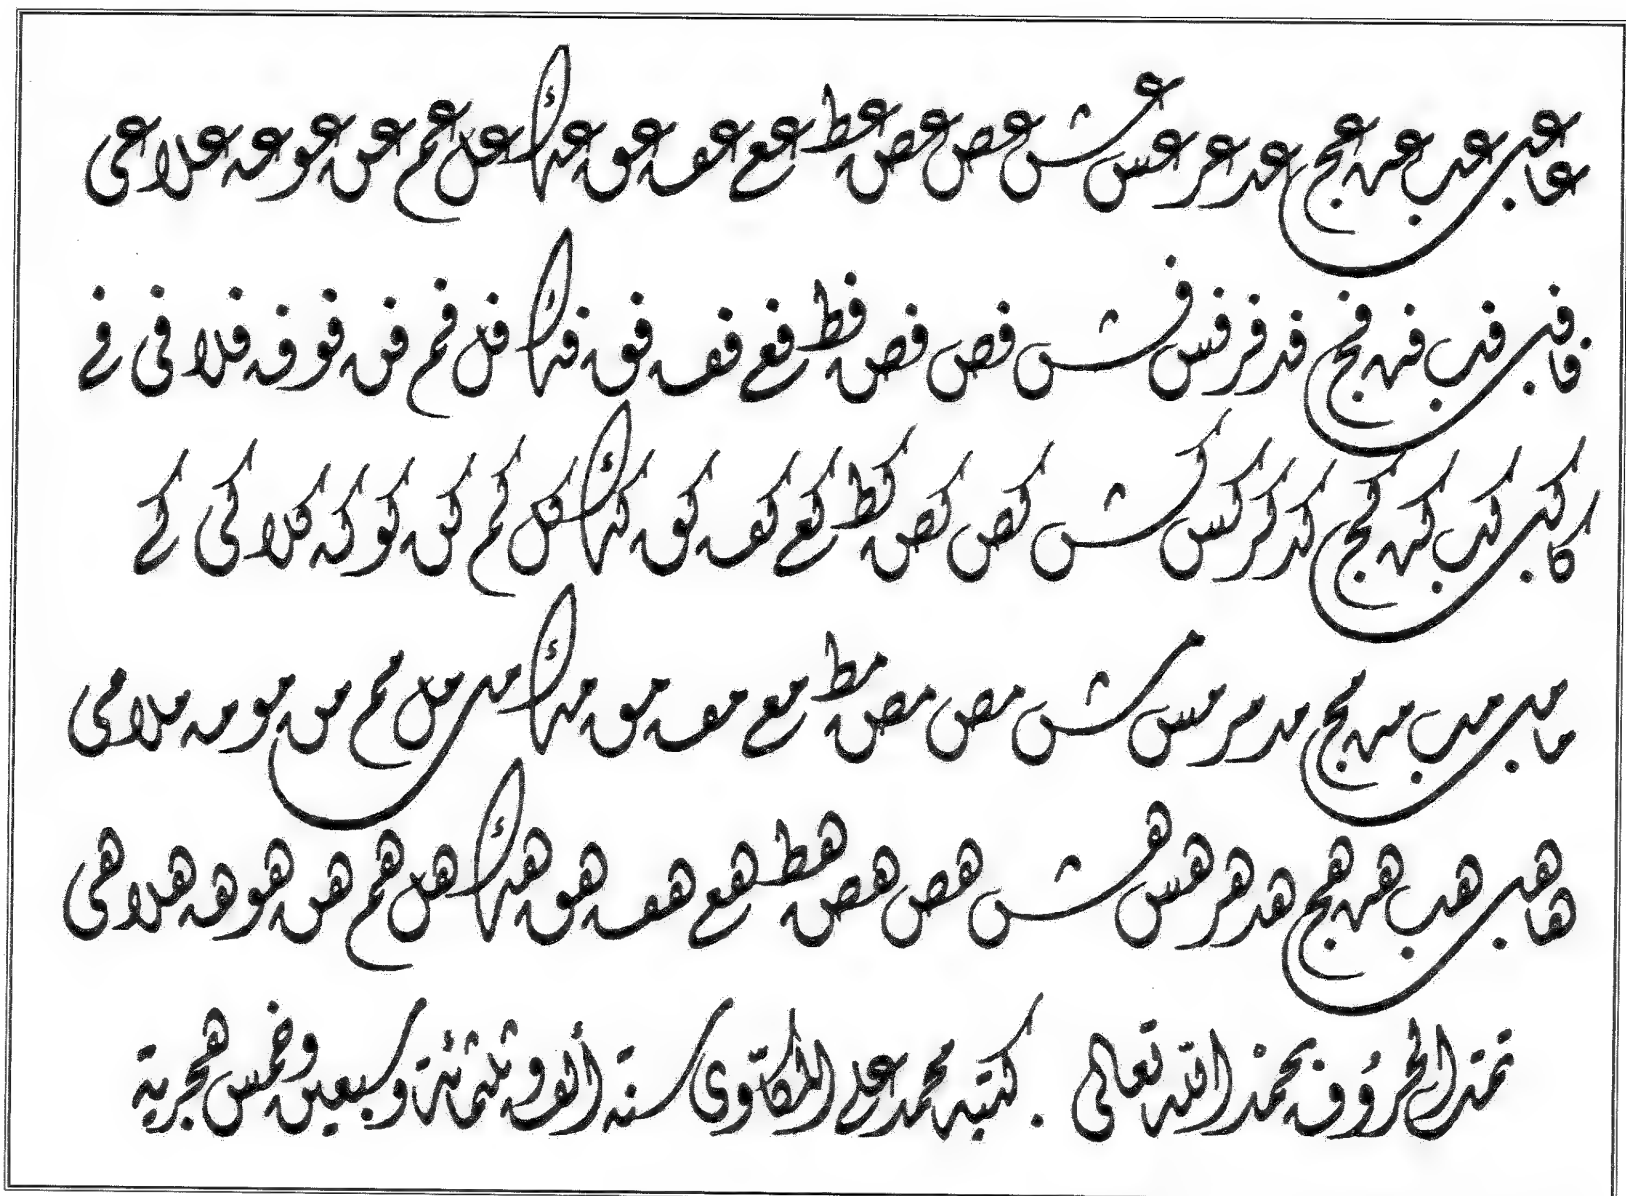 عا عب عب عه عج عد عر عس عش عص عص عط عع عف عق عك عل عم عن عو عه علا عى
فا فب فب فه فج فد فر فس فش فص فص فط فع فف فق فك فل فم فن فو فه فلا فى فے
كا كب كب كه كج كد كر كس كش كص كص كط كع كف كق كك كل كم كن كو كه كلا كى كے
ما مب مب مه مج مد مر مس مش مص مص مط مع مف مق مك مى مل مم من مو مه ملا مى
ها هب هب هه هج هد هر هس هش هص هص هط هع هف هق هك هل هم هن هو هه هلا هى
تمت الحروف بحمد الله تعالى . كتبه محمد على المكاوى سنة ألف وثلثمائة وسبعين وخمس هجرية